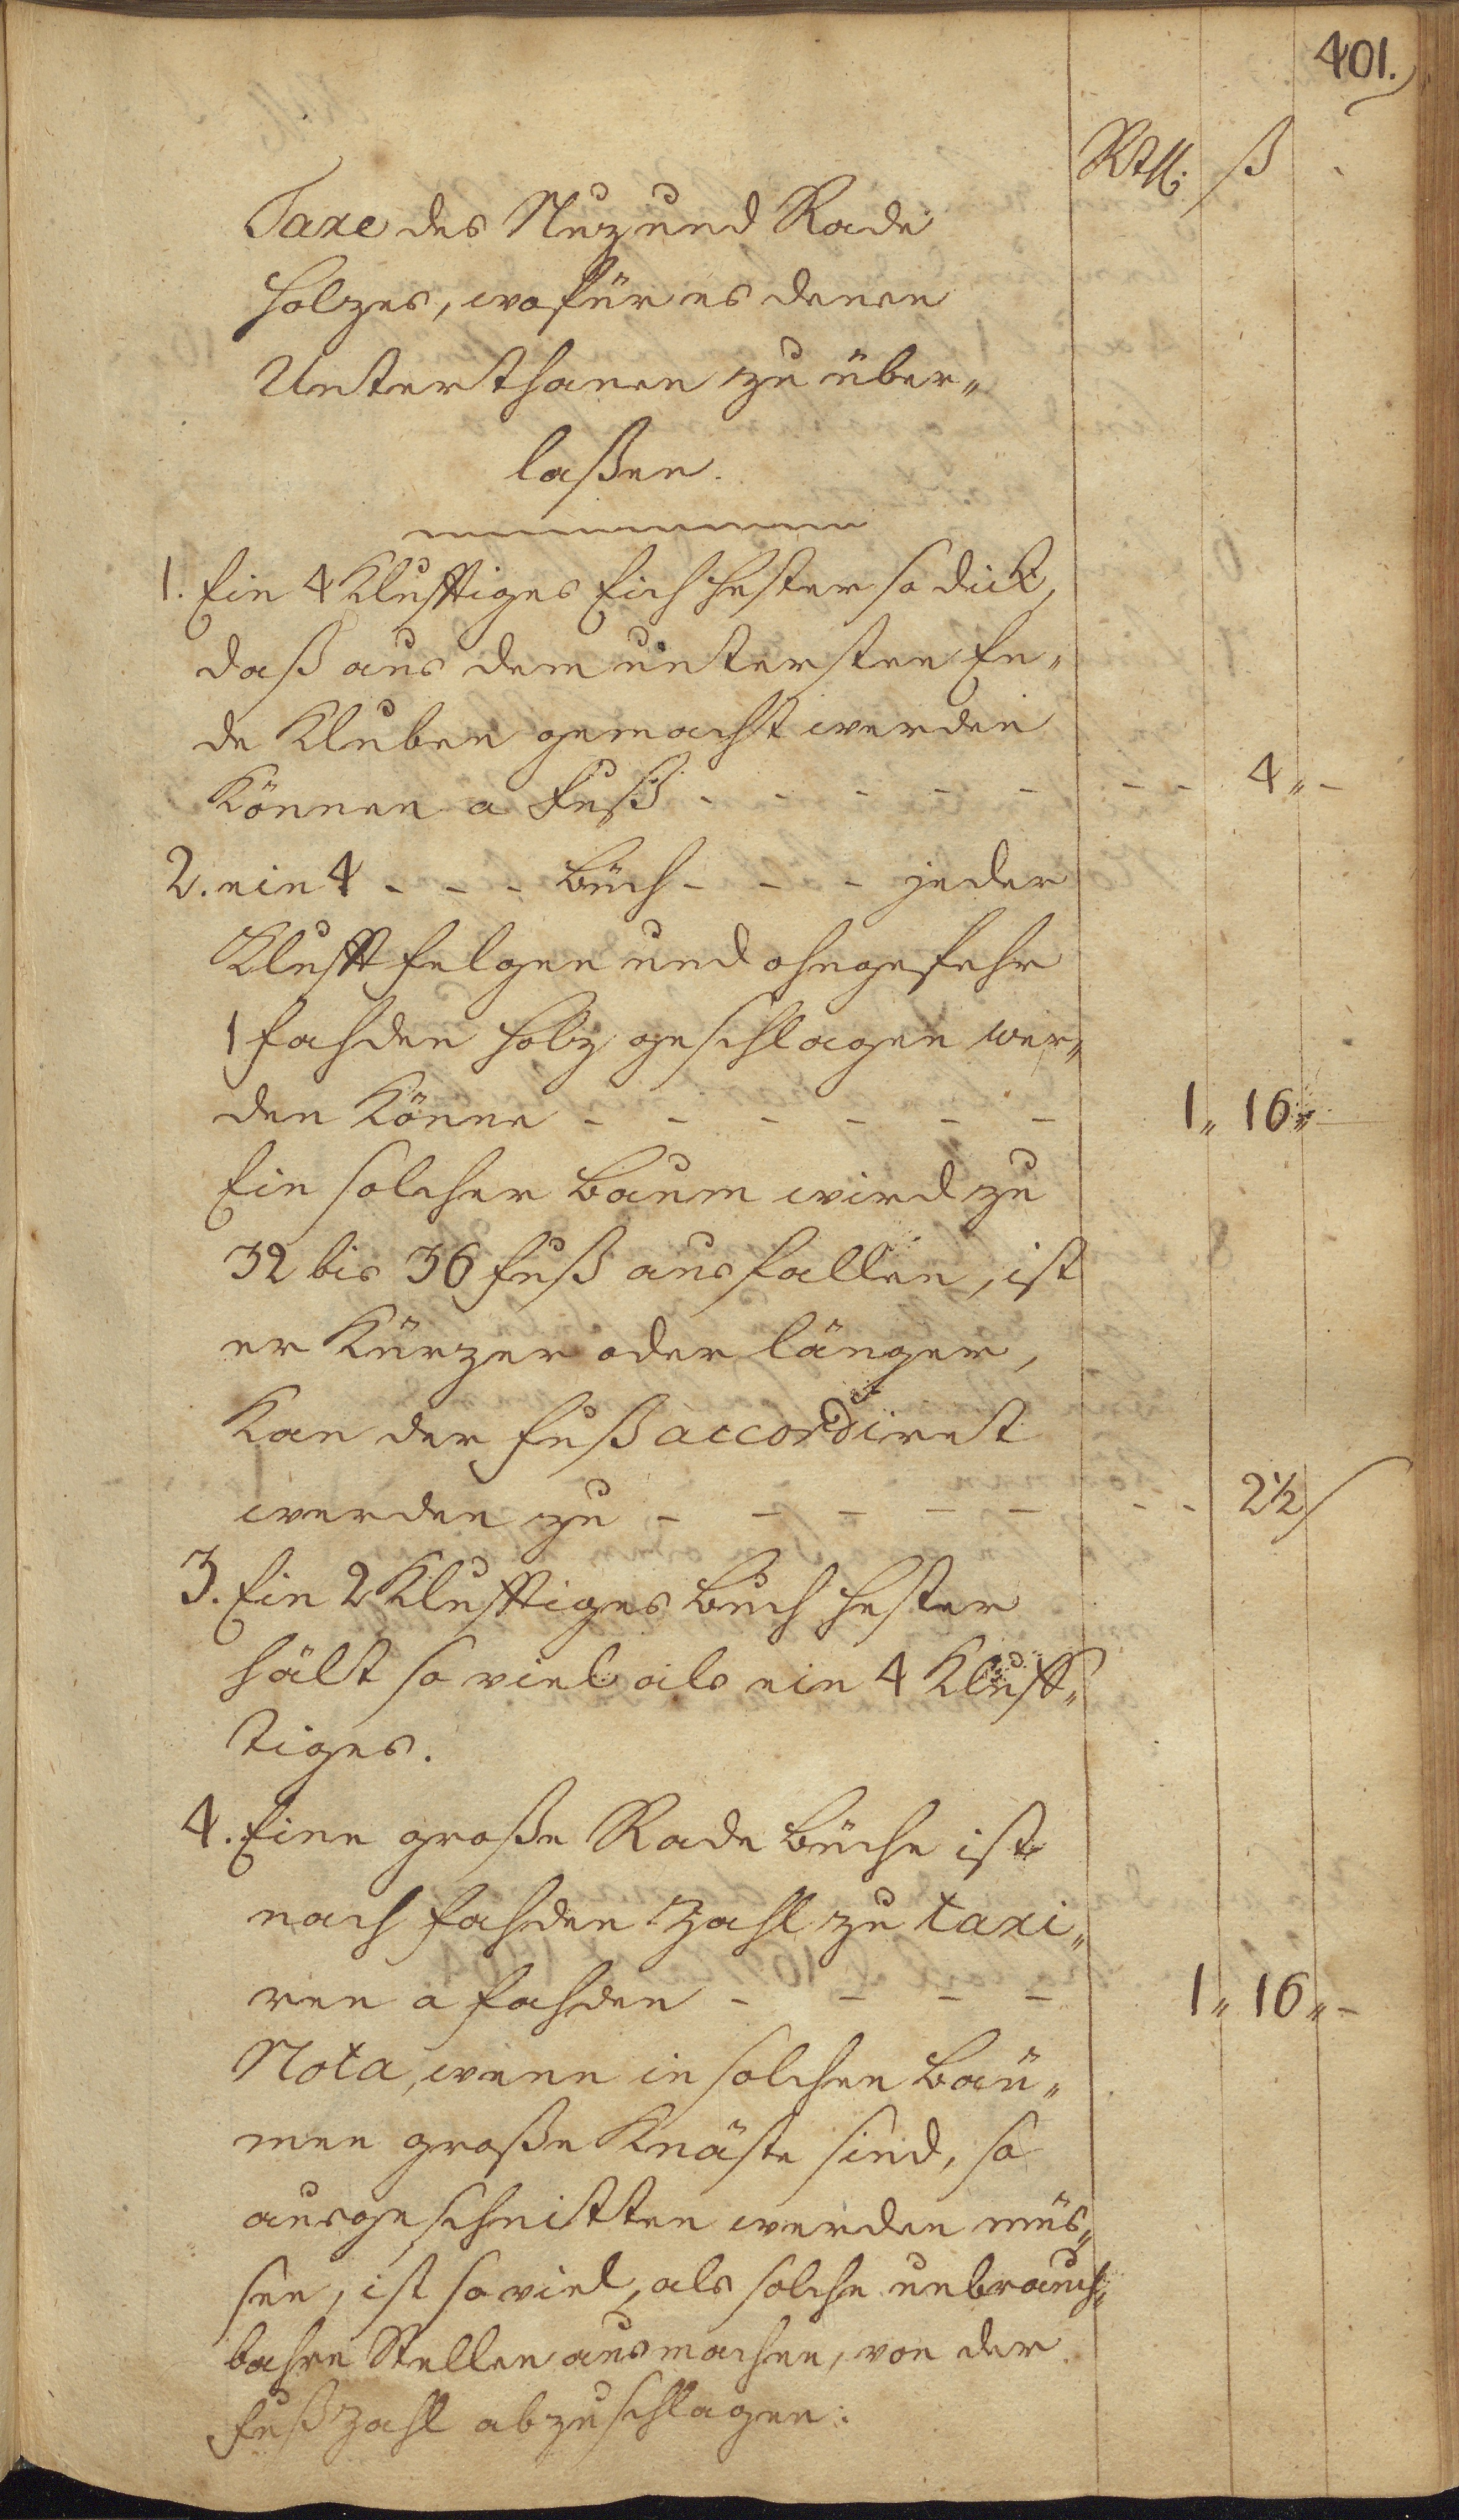 401.
Rthl. ß
Taxe des Nuz und Rade
Holzes, wofür es denen
Unterthanen zu über„
laßen.
1. Ein 4 Klufftiges Eich Hester so dick,
daß aus dem untersten En„
de Kluben gemacht werden
können a Fuß - - - - - - - 4 „ -
2. ein 4 - - - Büch - - - jeder
Klufft Felgen und ohngefehr
1 Fahden Holz geschlagen wer„
den könne - - - - - - 1 „ 16 „
Ein solcher Baum wird zu
32 bis 36 Fuß ausfallen, ist
er kürzer oder länger,
kan der Fuß accordiret
werden zu - - - - - - - 2 1/2
3. Ein 2 Klufftiges Buch Hester
hält so viel als ein 4 Kluff„
tiges.
4. Eine große Rade Büche ist
nach Fahden Zahl zu taxi„
ren a Fahden - - - - 1 „ 16 „ -
Nota, wenn in solchen Bäu„
men große Knäste sind, so
ausgeschnitten werden müs„
sen, ist so viel, als solche unbrauch„
bahre Stellen ausmachen, von der
Fußzahl abzuschlagen.